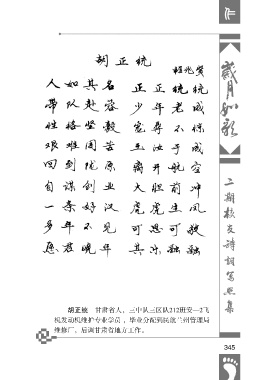 作
岁月如歌
胡正统
人如其名 正正统统
带队赴蓉 少年老成
性格坚毅
艰难困苦 玉汝于成
回到陇原 离开航空
自谋创业 大胆前冲
一条好汉 虎虎生风
多年不见 可思可
愿君晚年 其乐融融
胡正统 甘肃省人,三中队三区队212班安—2飞
机发动机维护专业学员,毕业分配到民航兰州管理局
维修厂,后调甘肃省地方工作。
二期校友诗词写照集
345